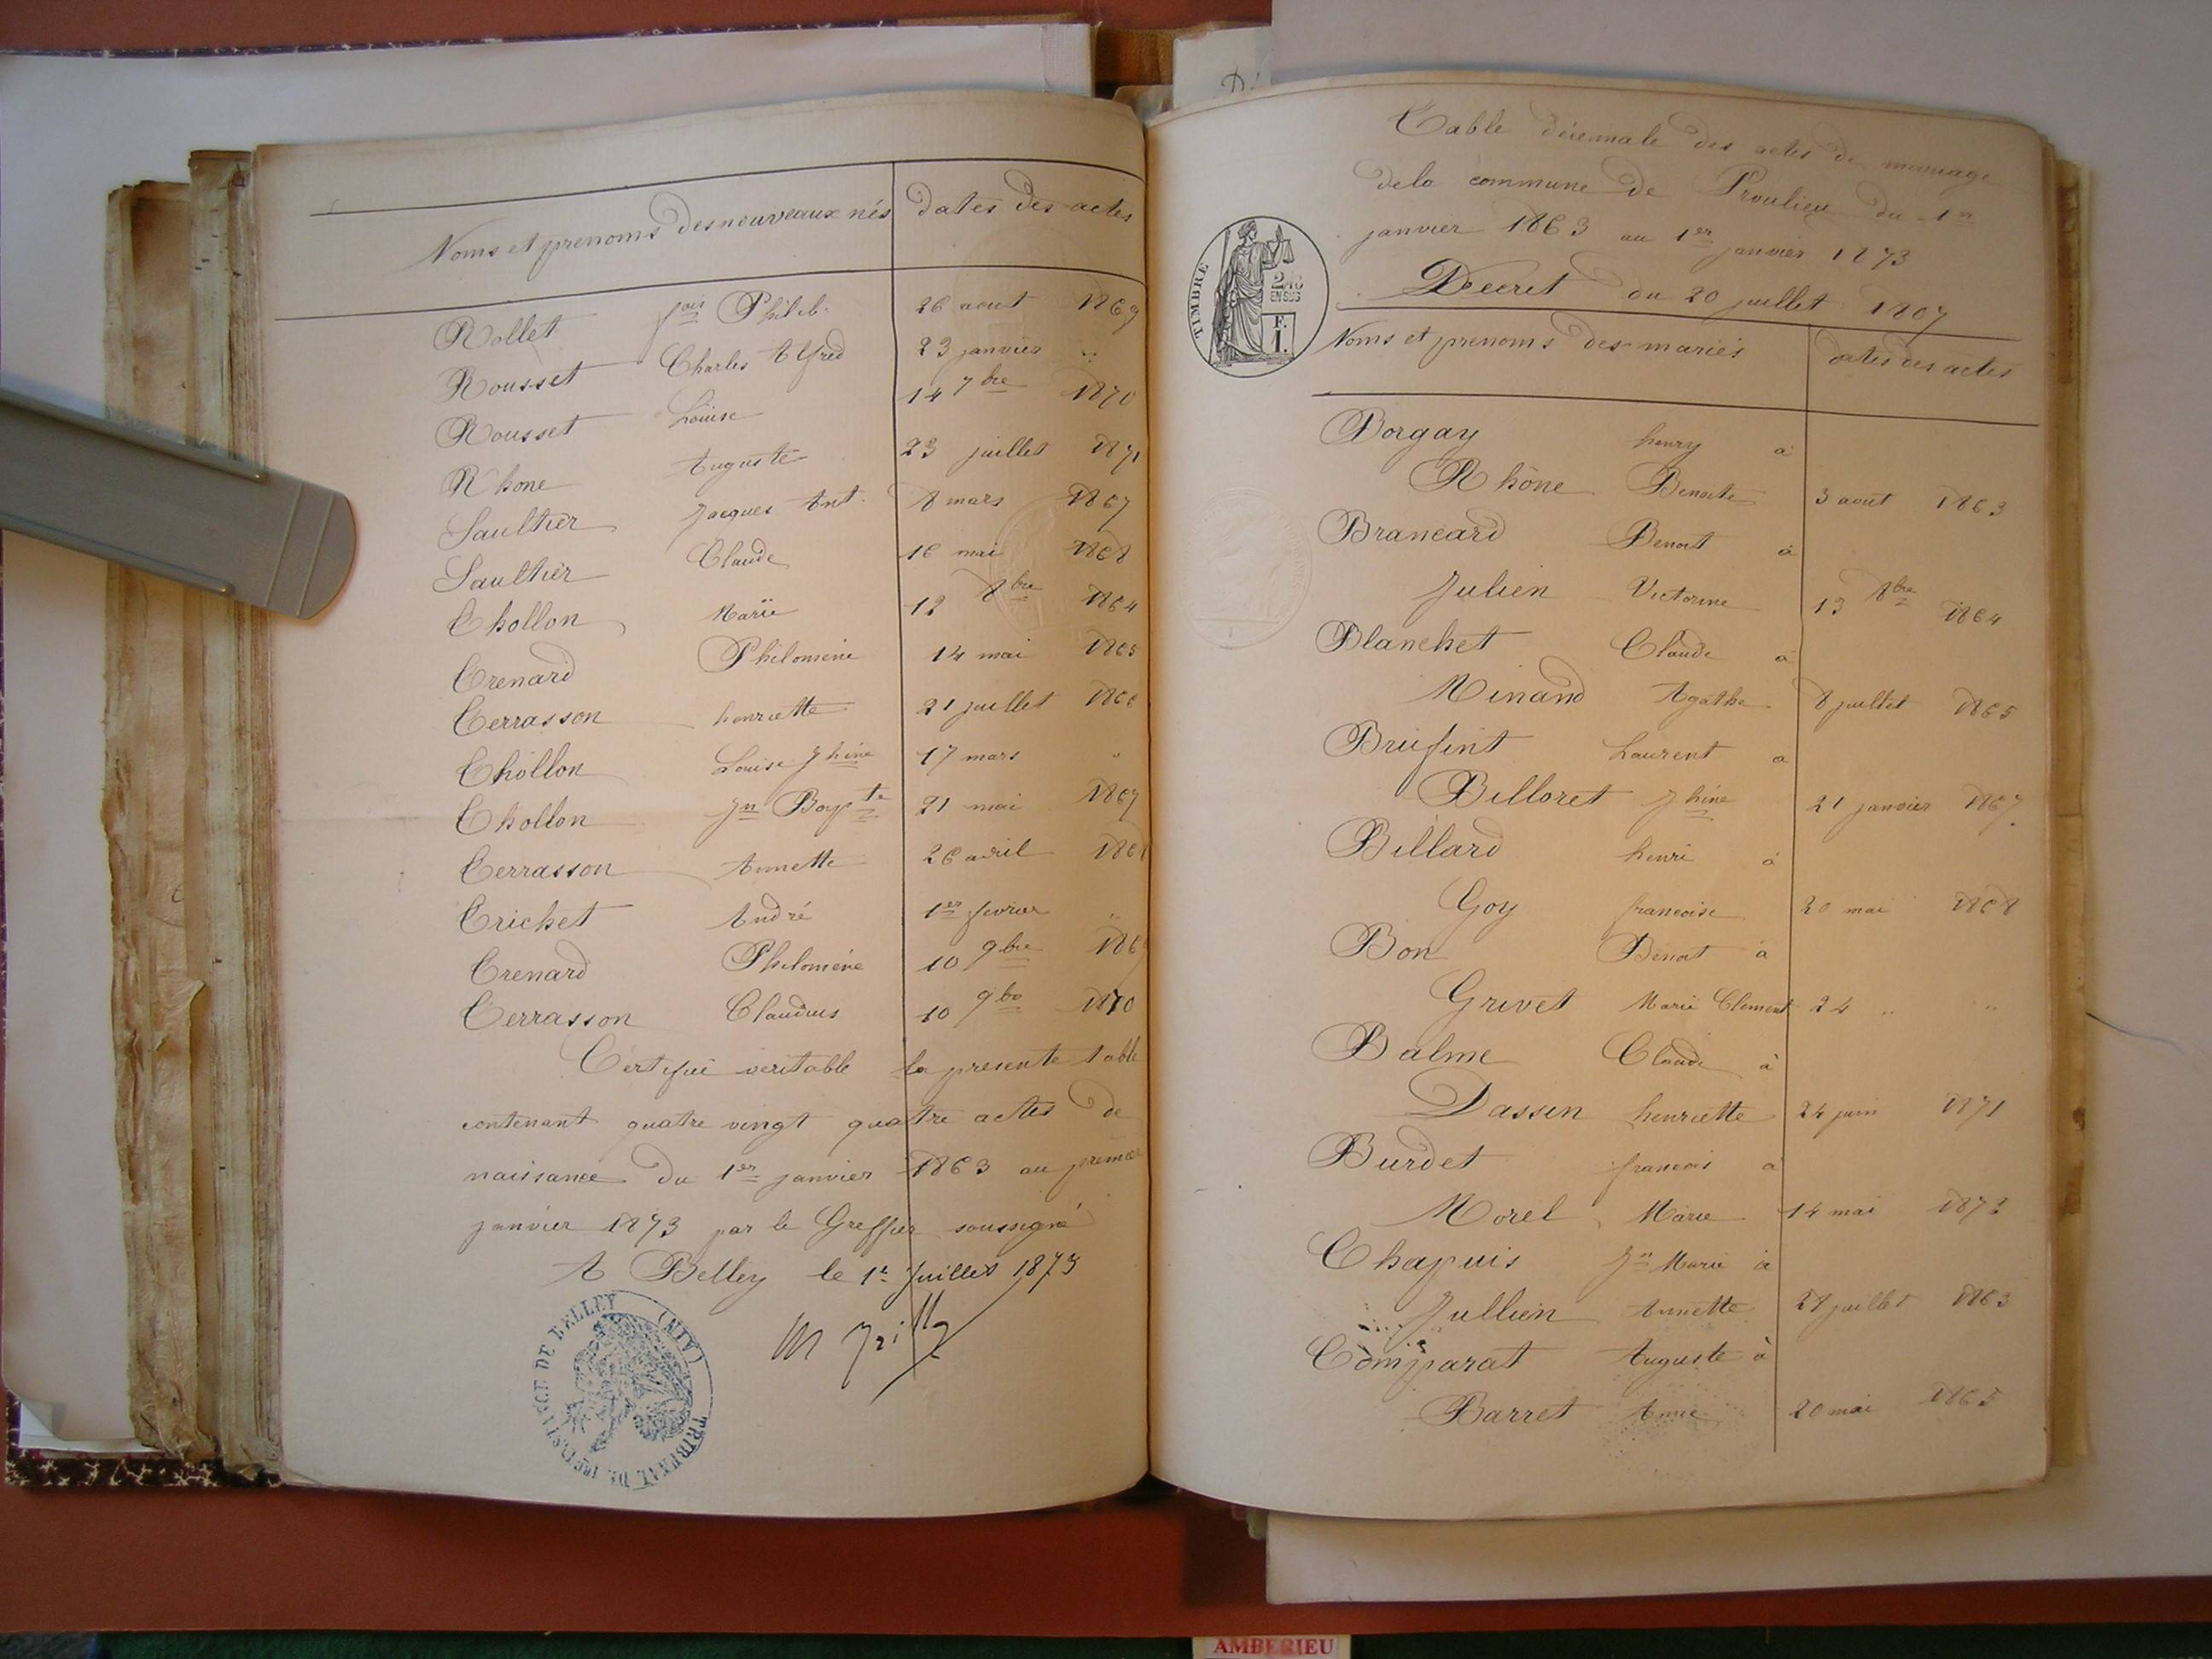 Noms et prenoms des nouveaux nés dates des actes
Rollet fois Philib. 26 aout 1869
Rousset Charles Alfred 23 janvier "
Rousset Louise 14 7bre 1870
Rhone Auguste 23 juillet 1871
Saultier Jacques Ant. 8 mars 1867
Saultier Claude 16 mai 1868
Thollon Marie 12 8bre 1864
Trenard Philomène 14 mai 1865
Terrasson henriette 21 juillet 1866
Thollon Louise Jhine 17 mars "
Thollon Jn Bapte 21 mai 1867
Terrasson Annette 26 avril 186
Trichet André 1er fevrier "
Trenard Philomène 10 9bre 186
Terrasson Claudius 10 9bre 1870
Certifié veritable la presente table
contenant quatre vingt quatre actes de
naissance du 1er janvier 1863 au premier
janvier 1873 par le Greffier soussigné
A Belley le 1er Juillet 1873
TRIBUNAL DE 1RE INSTANCE DE BELLEY (AIN)
Table décennale des actes de mariage
de la commune de Proulieu du 1er
janvier 1863 au 1er janvier 1873
Decret du 20 juillet 1807
TIMBRE
2/10
EN SUS
F.
1.
Noms et prenoms des mariés dates des actes
Borgay henry à
Rhône Benoite 3 aout 1863
Brancard Benoit à
Julien Victorine 13 8bre 1864
Blanchet Claude à
Minand Agathe 8 juillet 1865
Laurent a
Billoret Jhine 21 janvier 1867
Billard henri à
Goy francoise 20 mai 1868
Bon Benoit à
Grivet Marie Clement 24 " "
Balme Claude à
Dassin henriette 24 juin 1871
Burdet francois à
Morel Marie 14 mai 1872
Chapuis Jn Marie à
Jullien Annette 27 juillet 1863
Comparat Auguste à
Barret Anne 20 mai 1865
AMBERIEU